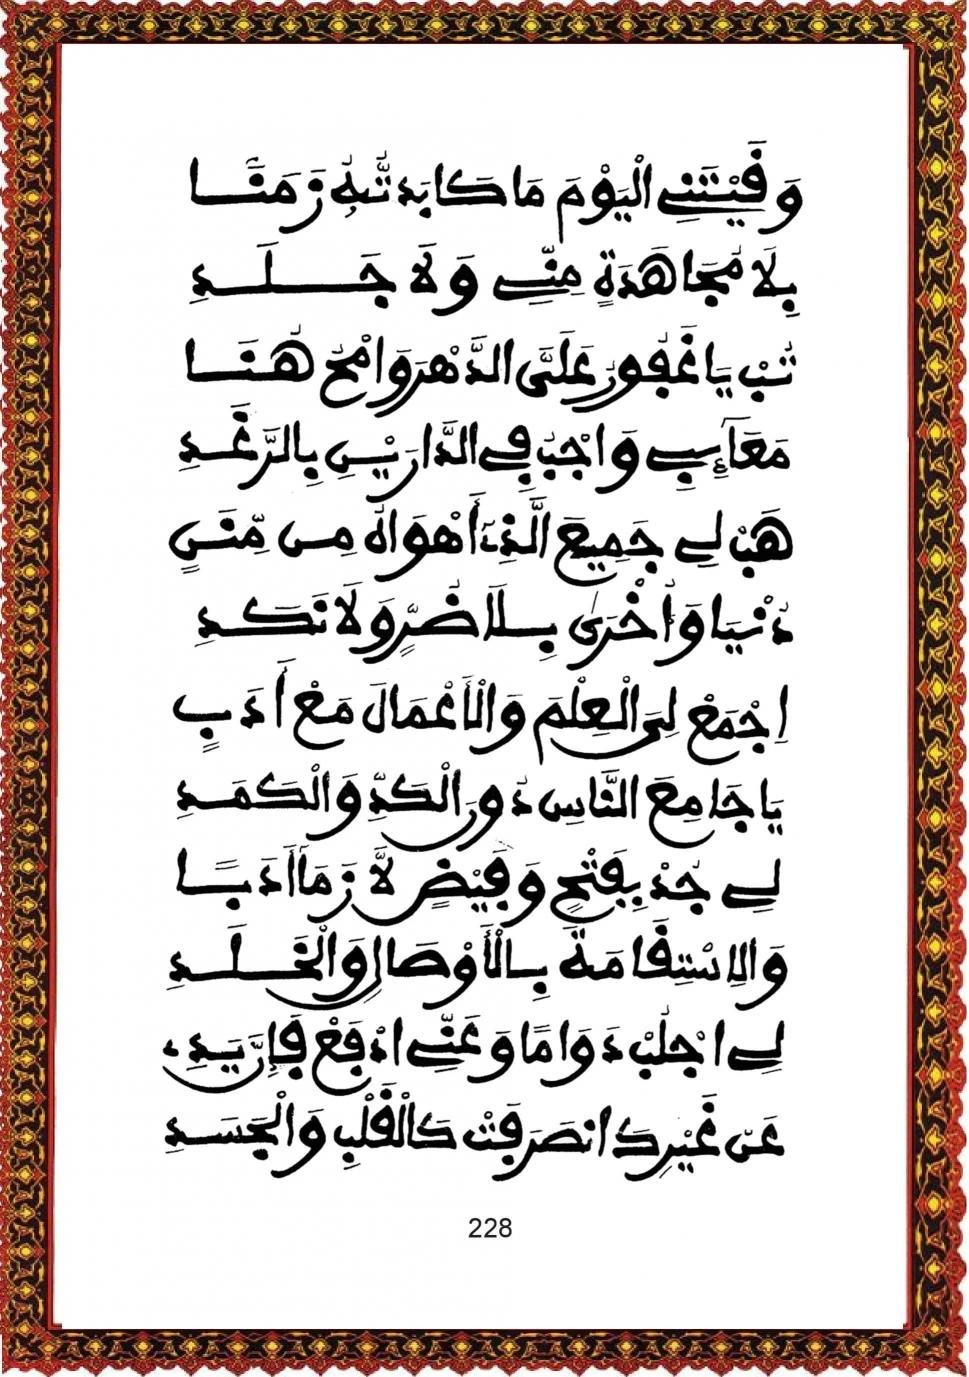 وَقَيْتَنِي الْيَوْمَ مَا كَابَدتُّهُ زَمَنَا
بِلَا مُجَاهَدَةٍ مِنِّي وَلَا جَلَدِ
تُبْ يَا غَفُورُ عَلَيَّ الدَّهْرَ وَامْحُ هَنَا
مَعَائِبِي وَاجْبُ فِي الدَّارَيْنِ بِالرَّغَدِ
هَبْ لِي جَمِيعَ الَّذِي أَهْوَاهُ مِن مِّنَنٍ
دُنْيَا وَأُخْرَى بِلَا ضَرٍّ وَلَا نَكَدِ
اِجْمَعْ لِيَ الْعِلْمَ وَالْأَعْمَالَ مَعْ أَدَبٍ
يَا جَامِعَ النَّاسِ دُورَ الْكَدِّ وَالْكَمَدِ
لِي جُدْ بِفَتْحٍ وَفَيْضٍ لَّازَمَا أَدَبًا
وَالِاسْتِقَامَةَ بِالْأَوْصَالِ وَالْخَلَدِ
لِي اجْلُبْ دَوَامًا وَعَنِّي ادْفَعْ فَإِرَّيَدِي
عَنْ غَيْرِكَ انصَرَفَتْ كَالْقَلْبِ وَالْجَسَدِ
228